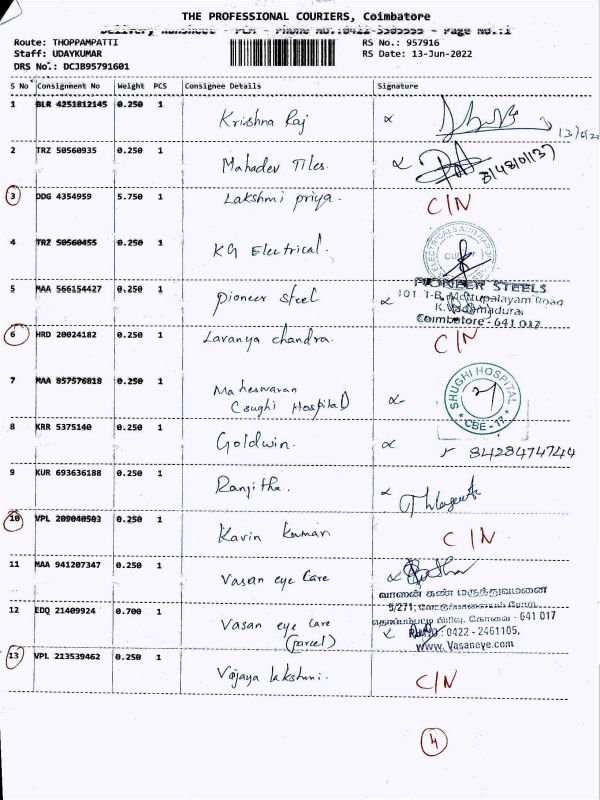 THE PROFESSIONAL COURIERS, Coimbatore
Delivery Runsheet - PCM - Phone No.:0422-3505555 - Page No.:1
Route: THOPPAMPATTI RS No.: 957916
Staff: UDAYKUMAR RS Date: 13-Jun-2022
DRS No.: DCJB95791601
S No Consignment No Weight PCS Consignee Details Signature
1 BLR 4251812145 0.250 1 Krishna Raj
2 TRZ 50560935 0.250 1 Mahadev Tiles.
3 DDG 4354959 5.750 1 Lakshmi priya. C/N
4 TRZ 50560455 0.250 1 KG Electrical.
5 MAA 566154427 0.250 1 pioneer steel
PIONEER STEELS
101 1-B, Mettupalayam Road
K.Vadamadurai
Coimbatore - 641 017
6 HRD 20024182 0.250 1 Lavanya chandra. C/N
7 MAA 857576818 0.250 1 Maheswaran
(Sughi Hospital)
SHUGHI HOSPITAL
* CBE - 17 *
8 KRR 5375140 0.250 1 Goldwin. 8428474744
9 KUR 693636188 0.250 1 Ranjitha.
10 VPL 209040503 0.250 1 Kavin Kumar C/N
11 MAA 941207347 0.250 1 Vasan eye Care
வாசன் கண் மருத்துவமனை
12 EDQ 21409924 0.700 1 Vasan eye Care
(parcel)
5/271, மேட்டுப்பாளையம் ரோடு,
பிரிவு, கோவை - 641 017
0422 - 2461105,
www.Vasaneye.com
13 VPL 213539462 0.250 1 Vijaya lakshmi. C/N
4